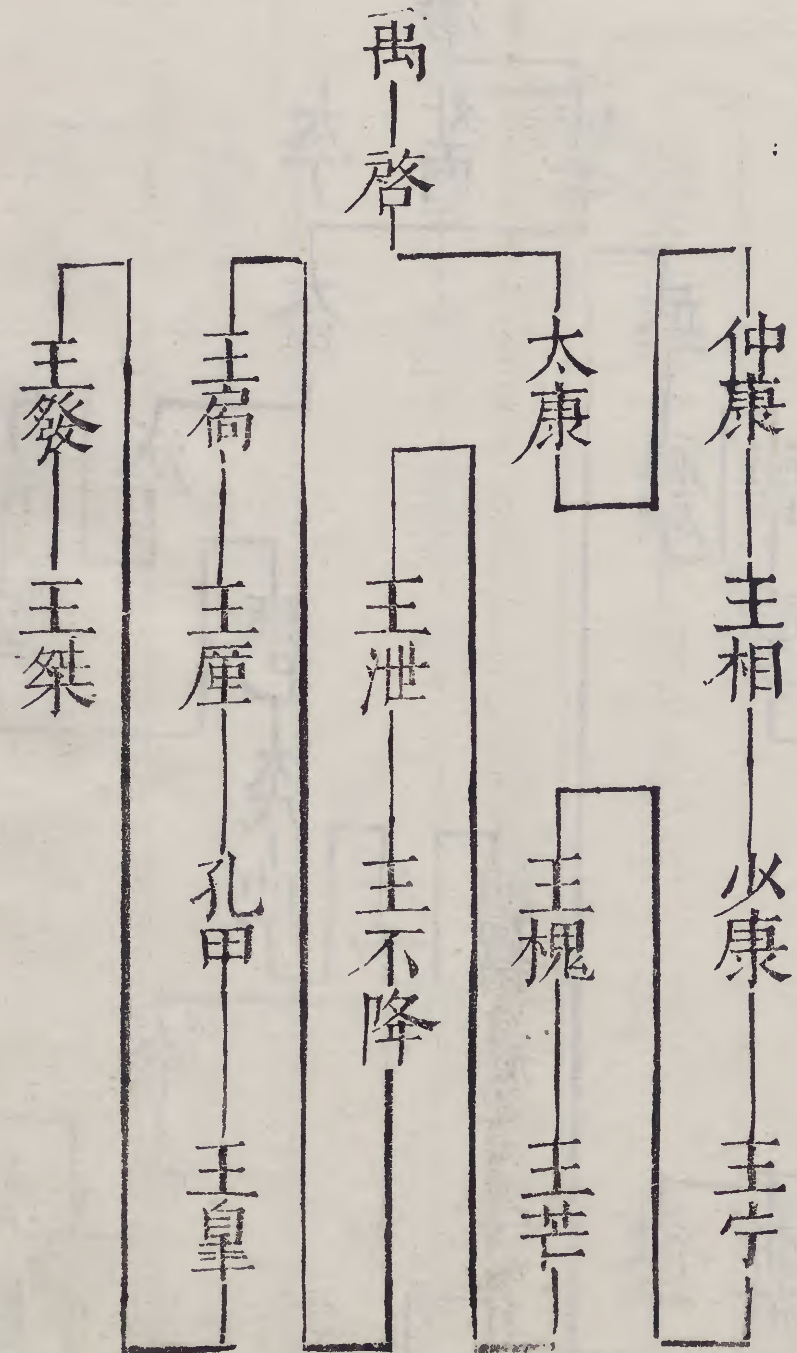 禹
啓
太康
仲康
王相
少康
王宁
王槐
王芒
王泄
王不降
王扃
王厘
孔甲
王皐
王發
王桀